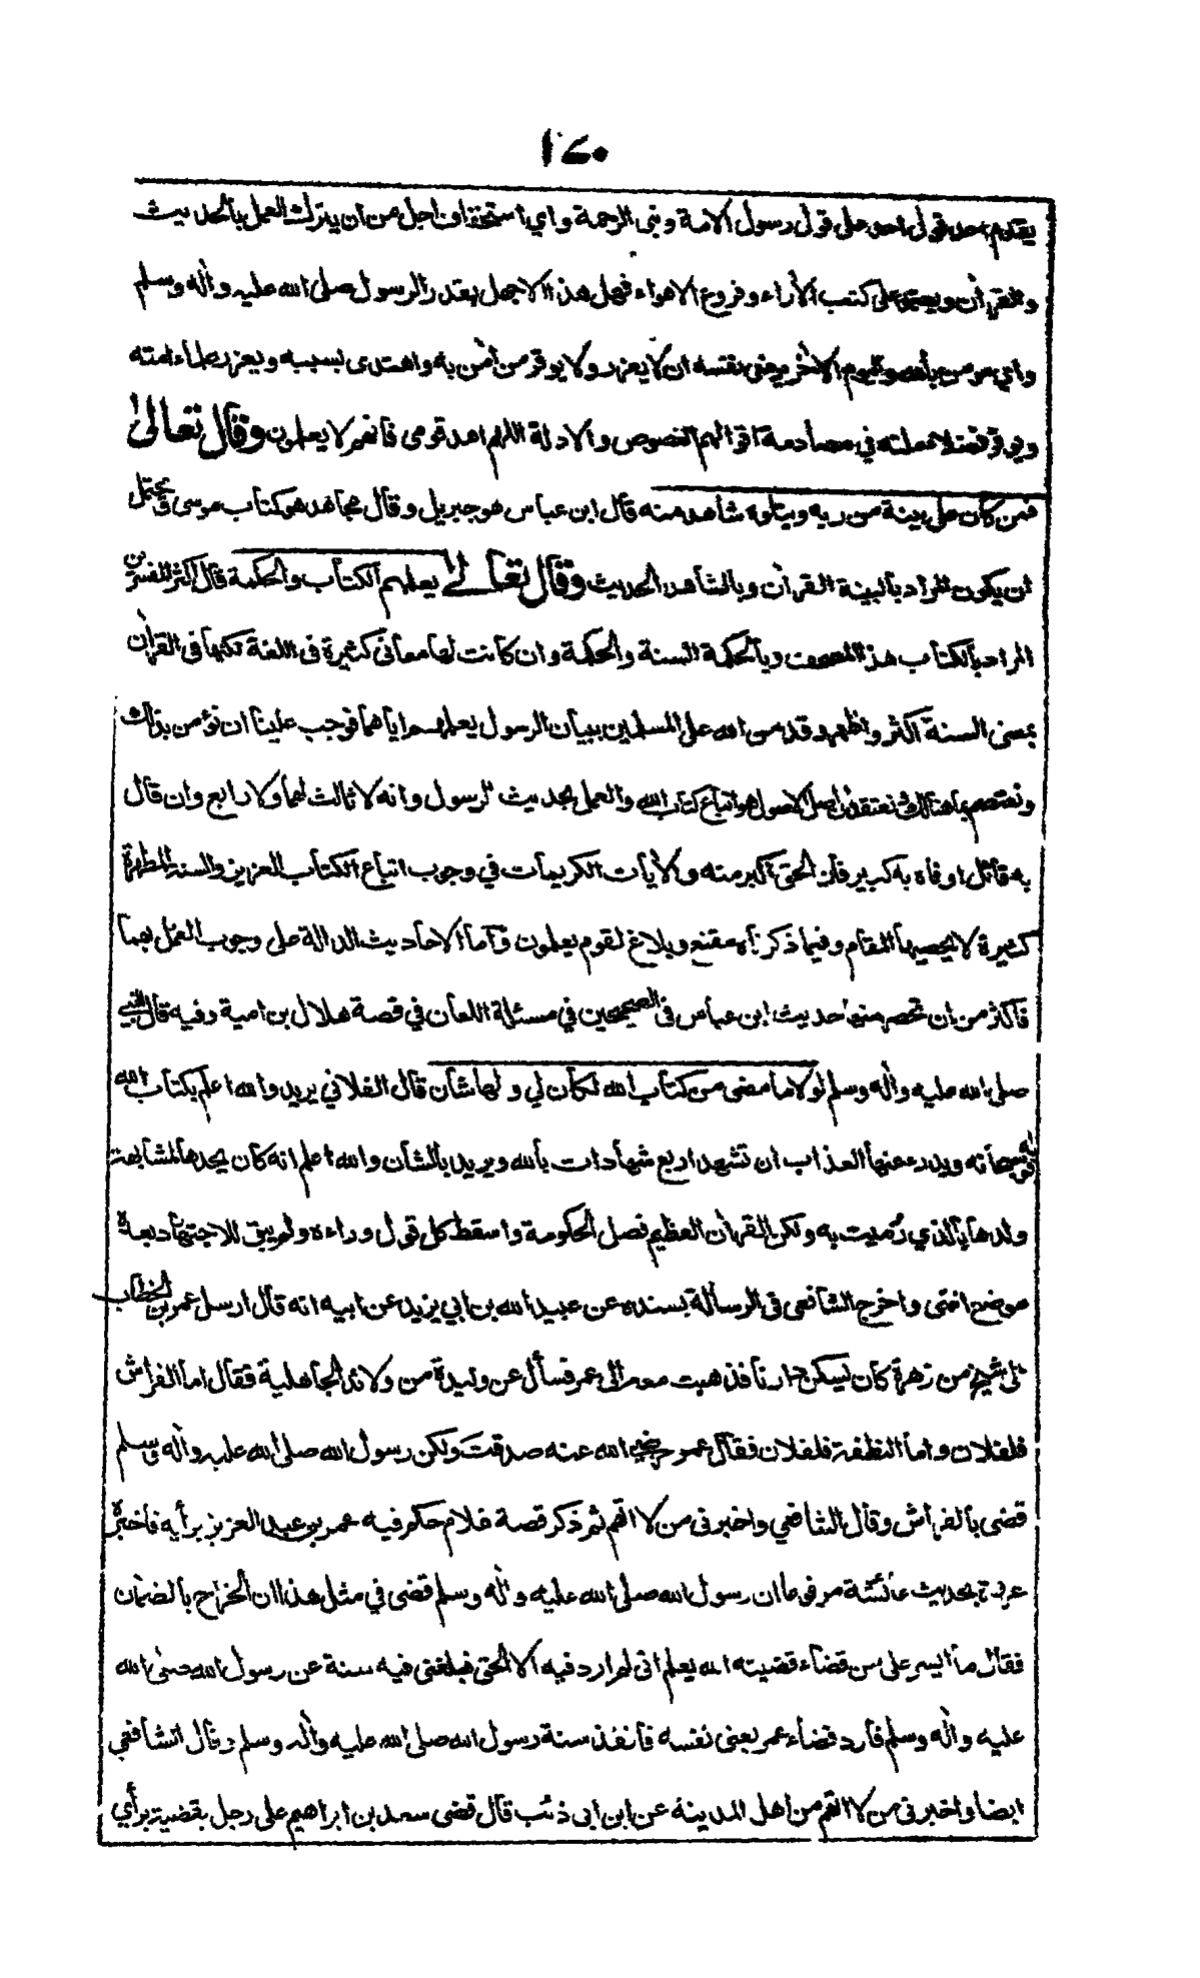 ١٤٠
يقدم احد قول احد على قول رسول الامة ونبى الرحمة واي استخفاف اجل من ان يترك العمل بالحديث
والقرأن ويعتمد على كتب الأراء وفروع الاهواء فهل هذا الا جهل بقدر الرسول صلى الله عليه وأله وسلم
واي مومن بالله واليوم الأخر يرضى بنفسه ان لا يعزر ولا يوقر من أمن به واهتدى بسببه ويعزر علماء امته
ويوقر فضلاء ملته في مصادمة اقوالهم النصوص والادلة اللهم اهد قومى فانهم لا يعلمون وقال تعالى
فمن كان على بينة من ربه ويتلوه شاهد منه قال ابن عباس هو جبريل وقال مجاهد هو كتاب موسى ويحتمل
ان يكون المراد بالبينة القرأن وبالشاهد الحديث وقال تعالى يعلمهم الكتاب والحكمة قال اكثر المفسرين
المراد بالكتاب هذا المصحف وبالحكمة السنة والحكمة وان كانت لها معانى كثيرة فى اللغة لكنها فى القرأن
بمعنى السنة اكثر واظهر وقد من الله على المسلمين ببيان الرسول يعلمهم اياهما فوجب علينا ان نؤمن بذلك
ونعتصم بما هنالك ونعتقد ان اصل الاصول هو اتباع كتاب الله والعمل بحديث الرسول وانه لا ثالث لهما ولا رابع وان قال
به قائل او فاه به كبير فان الحق اكبر منه والأيات الكريمات في وجوب اتباع الكتاب العزيز والسنة المطهرة
كثيرة لا يحصيها المقام وفيما ذكرناه مقنع وبلاغ لقوم يعلمون وأما الاحاديث الدالة على وجوب العمل بهما
فاكثر من ان تحصر منها حديث ابن عباس فى الصحيحين في مسئلة اللعان في قصة هلال بن امية وفيه قال النبي
صلى الله عليه وأله وسلم لولا ما مضى من كتاب الله لكان لي ولها شأن قال الفلاني يريد والله اعلم بكتاب الله
قوله سبحانه ويدرء عنها العذاب ان تشهد اربع شهادات بالله ويريد بالشأن والله اعلم انه كان يحدها لمشابهة
ولدها بالذي رميت به ولكن القرأن العظيم فصل الحكومة واسقط كل قول وراءه ولم يبق للاجتهاد بعدة
موضع انتهى واخرج الشافعى فى الرسالة بسنده عن عبيد الله بن ابي يزيد عن ابيه انه قال ارسل عمر بن الخطاب
الى شيخ من زهرة كان يسكن دارنا فذهبت معه الى عمر فسأل عن وليدة من ولائد الجاهلية فقال اما الفراش
فلفلان واما النطفة فلفلان فقال عمر رضي الله عنه صدقت ولكن رسول الله صلى الله عليه وأله وسلم
قضى بالفراش وقال الشافعي واخبرنى من لا اتهم ثم ذكر قصة غلام حكم فيه عمر بن عبد العزيز برأيه فاخبره
عروة بحديث عائشة مرفوعا ان رسول الله صلى الله عليه وأله وسلم قضى في مثل هذا ان الخراج بالضمان
فقال ما ايسر على من قضاء قضيته الله يعلم انى لم ارد فيه الا الحق فبلغنى فيه سنة عن رسول الله صلى الله
عليه وأله وسلم فارد قضاء عمر يعنى نفسه فانفذ سنة رسول الله صلى الله عليه وأله وسلم وقال الشافعي
ايضا واخبرنى من لا اتهم من اهل المدينة عن ابن ابى ذئب قال قضى سعد بن ابراهيم على رجل بقضية برأي